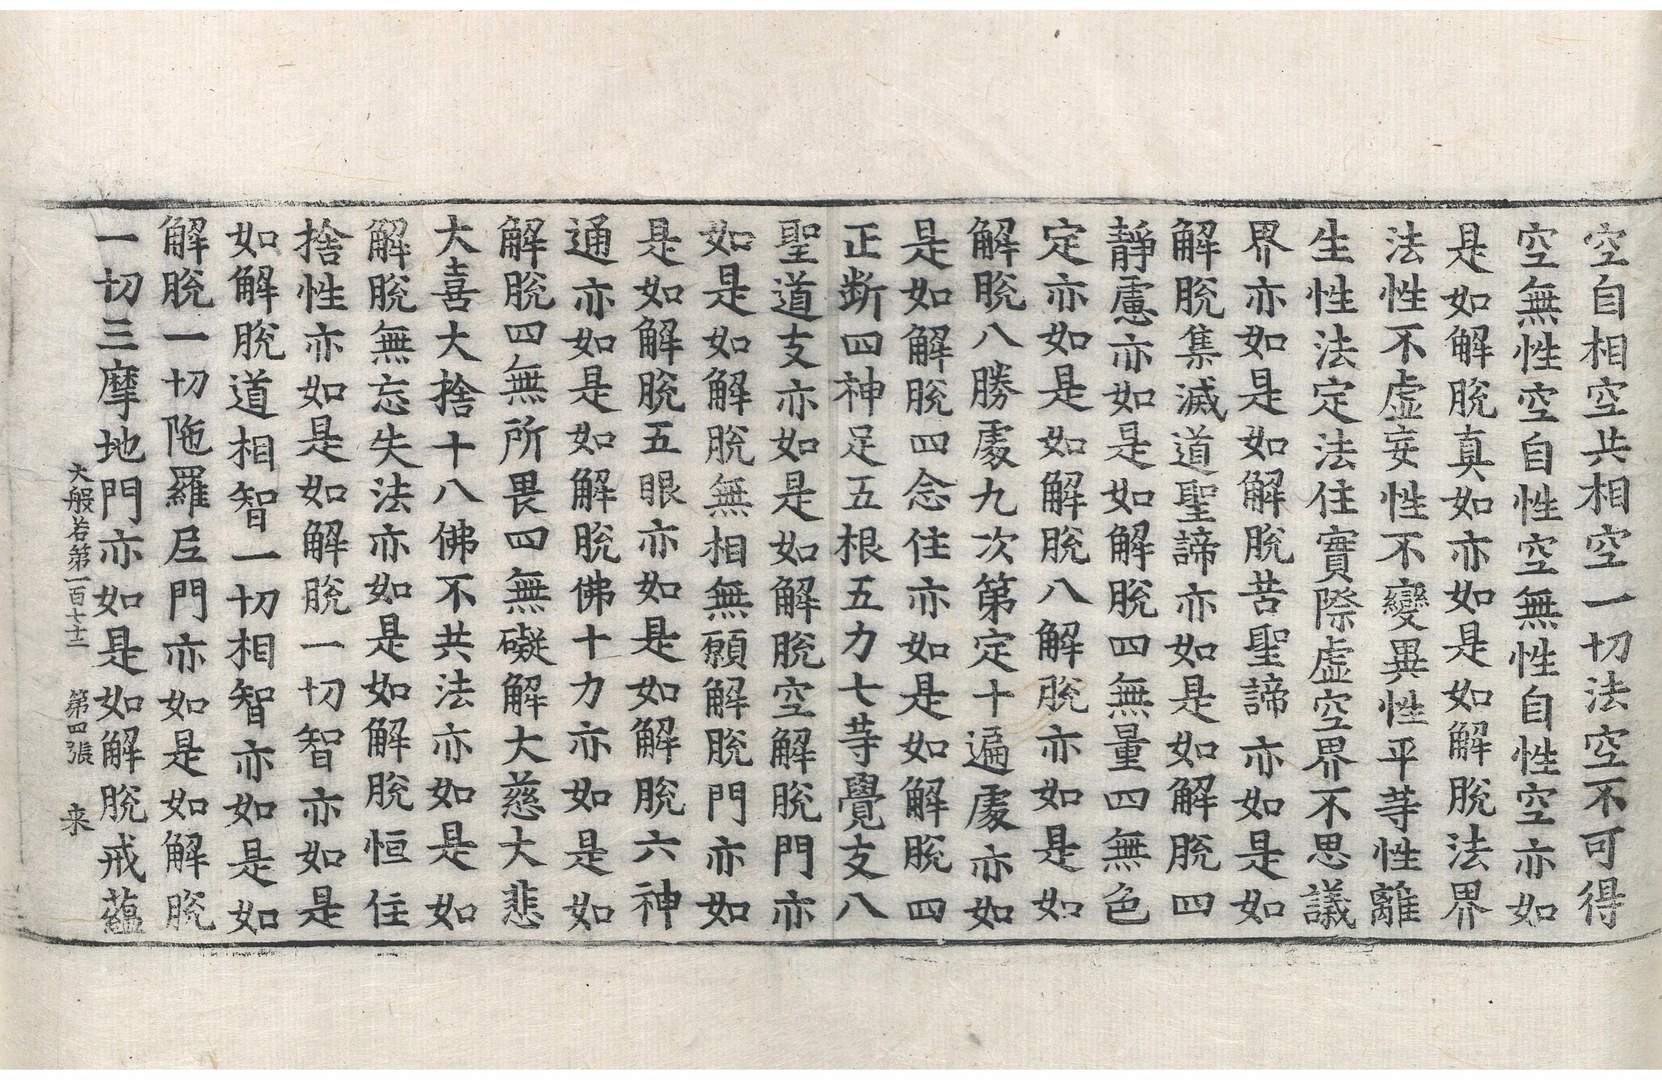 空自相空共相空一切法空不可得
空無性空自性空無性自性空亦如
是如解脫真如亦如是如解脫法界
法性不虛妄性不變異性平等性離
生性法定法住實際虛空界不思議
界亦如是如解脫苦聖諦亦如是如
解脫集滅道聖諦亦如是如解脫四
靜慮亦如是如解脫四無量四無色
定亦如是如解脫八解脫亦如是如
解脫八勝處九次第定十遍處亦如
是如解脫四念住亦如是如解脫四
正斷四神足五根五力七等覺支八
聖道支亦如是如解脫空解脫門亦
如是如解脫無相無願解脫門亦如
是如解脫五眼亦如是如解脫六神
通亦如是如解脫佛十力亦如是如
解脫四無所畏四無礙解大慈大悲
大喜大捨十八佛不共法亦如是如
解脫無忘失法亦如是如解脫恒住
捨性亦如是如解脫一切智亦如是
如解脫道相智一切相智亦如是如
解脫一切陁羅尼門亦如是如解脫
一切三摩地門亦如是如解脫戒蘊
大般若第一百七十二 第四張 来